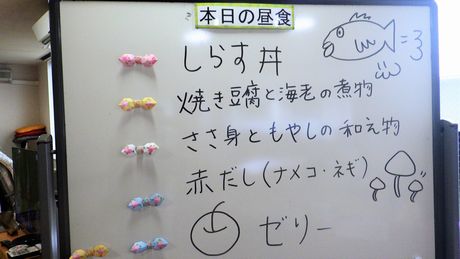 本日の昼食
しらす丼
焼き豆腐と海老の煮物
ささ身ともやしの和え物
赤だし(ナメコ・ネギ)
ゼリー